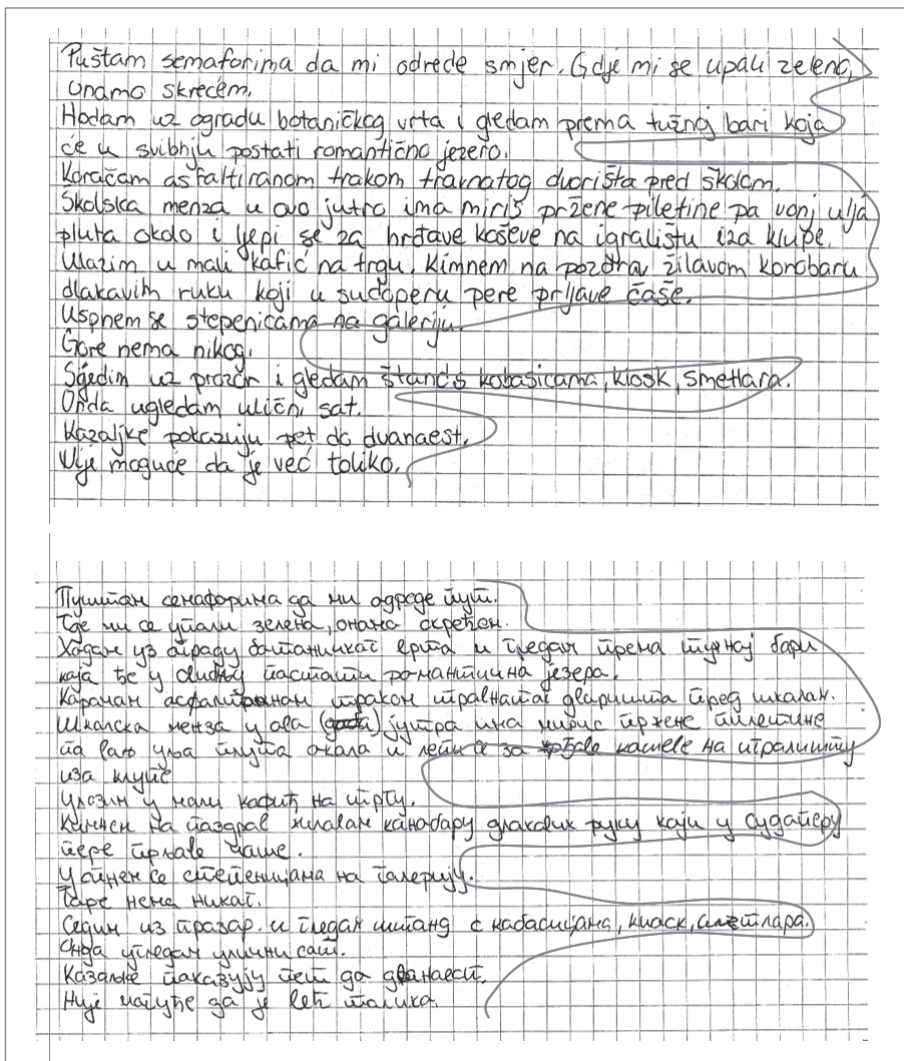 Puštam semaforima da mi odrede smjer. Gdje mi se upali zeleno,
onamo skrećem.
Hodam uz ogradu botaničkog vrta i gledam prema tužnoj bari koja
će u svibnju postati romantično jezero.
Koračam asfaltiranom trakom travnatog dvorišta pred školom.
Školska menza u ovo jutro ima miris pržene piletine pa vonj ulja
pluta okolo i ljepi se za hrđave koševe na igralištu iza klupe.
Ulazim u mali kafić na trgu. Kimnem na pozdrav žilavom konobaru
dlakavih ruku koji u sudoperu pere prljave čaše.
Uspnem se stepenicama na galeriju.
Gore nema nikog.
Sjedim uz prozor i gledam štand s kobasicama, kiosk, smetlara.
Onda ugledam ulični sat.
Kazaljke pokazuju pet do dvanaest.
Nije moguće da je već toliko.
Пуштам семафорима да ми одреде пут.
Где ми се упали зелена, онамо скрећем.
Ходам уз ограду ботаничког врта и гледам према тужној бари
која ће у постати романтична језера.
Корачам траком травнатог дворишта пред школам.
Школска менза у ова јутра има мирис пржене пилетине
па уља плута окола и лепи се за кошеве на игралишту
иза клупе
Улазим у мали кафић на тргу.
Кимнем на паздрав жилавам канобару длакавих руку који у судаперу
пере прљаве чаше.
Успнем се степеницама на галерију.
Горе нема никог.
Седим уз празар и гледам штанд с кабасицама, киаск, сметлара.
Онда угледам улични сат.
Казаљке паказују пет да дванаест.
Није магуће да је већ талика.